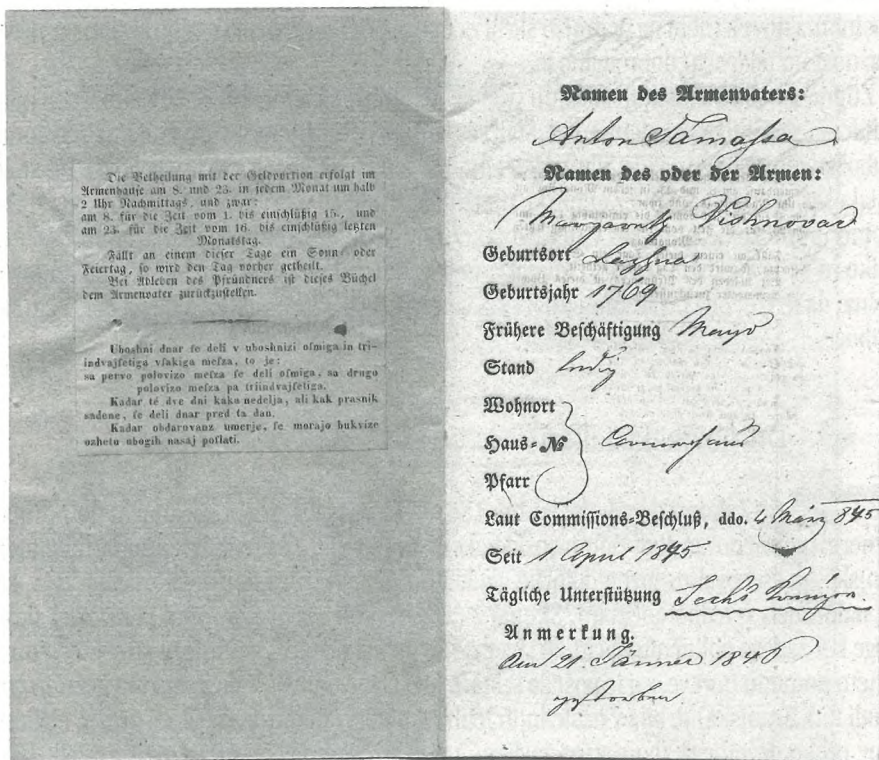 Die Betheilung mit der Geldportion erfolgt im
Armenhause am 8. und 23. in jedem Monat um halb
2 Uhr Nachmittags, und zwar:
am 8. für die Zeit vom 1. bis einschlüßig 15., und
am 23. für die Zeit vom 16. bis einschlüßig letzten
Monatstag.
Fällt an einem dieser Tage ein Sonn- oder
Feiertag, so wird den Tag vorher getheilt.
Bei Ableben des Pfründners ist dieses Büchel
dem Armenvater zurückzustellen.
Uboshni dnar ſe deli v uboshnizi oſmiga in tri-
indvajſetiga vſakiga meſza, to je:
sa pervo polovizo meſza ſe deli oſmiga, sa drugo
polovizo meſza pa triindvajſetiga.
Kadar té dve dni kaka nedelja, ali kak prasnik
sadene, ſe deli dnar pred ta dan.
Kadar obdarovanz umerje, ſe morajo bukvize
ozhetu ubogih nasaj poſlati.
Namen des Armenvaters:
Anton Samassa
Namen des oder der Armen:
Margareth
Geburtsort
Geburtsjahr 1769
Frühere Beschäftigung Magd
Stand ledig
Wohnort
Haus-№ Armenhaus
Pfarr
Laut Commissions-Beschluß, ddo. 4 März 845
Seit 1 April 1845
Tägliche Unterstützung Sechs Kreuzer.
Anmerkung.
Am 21. Jänner 1846
gestorben